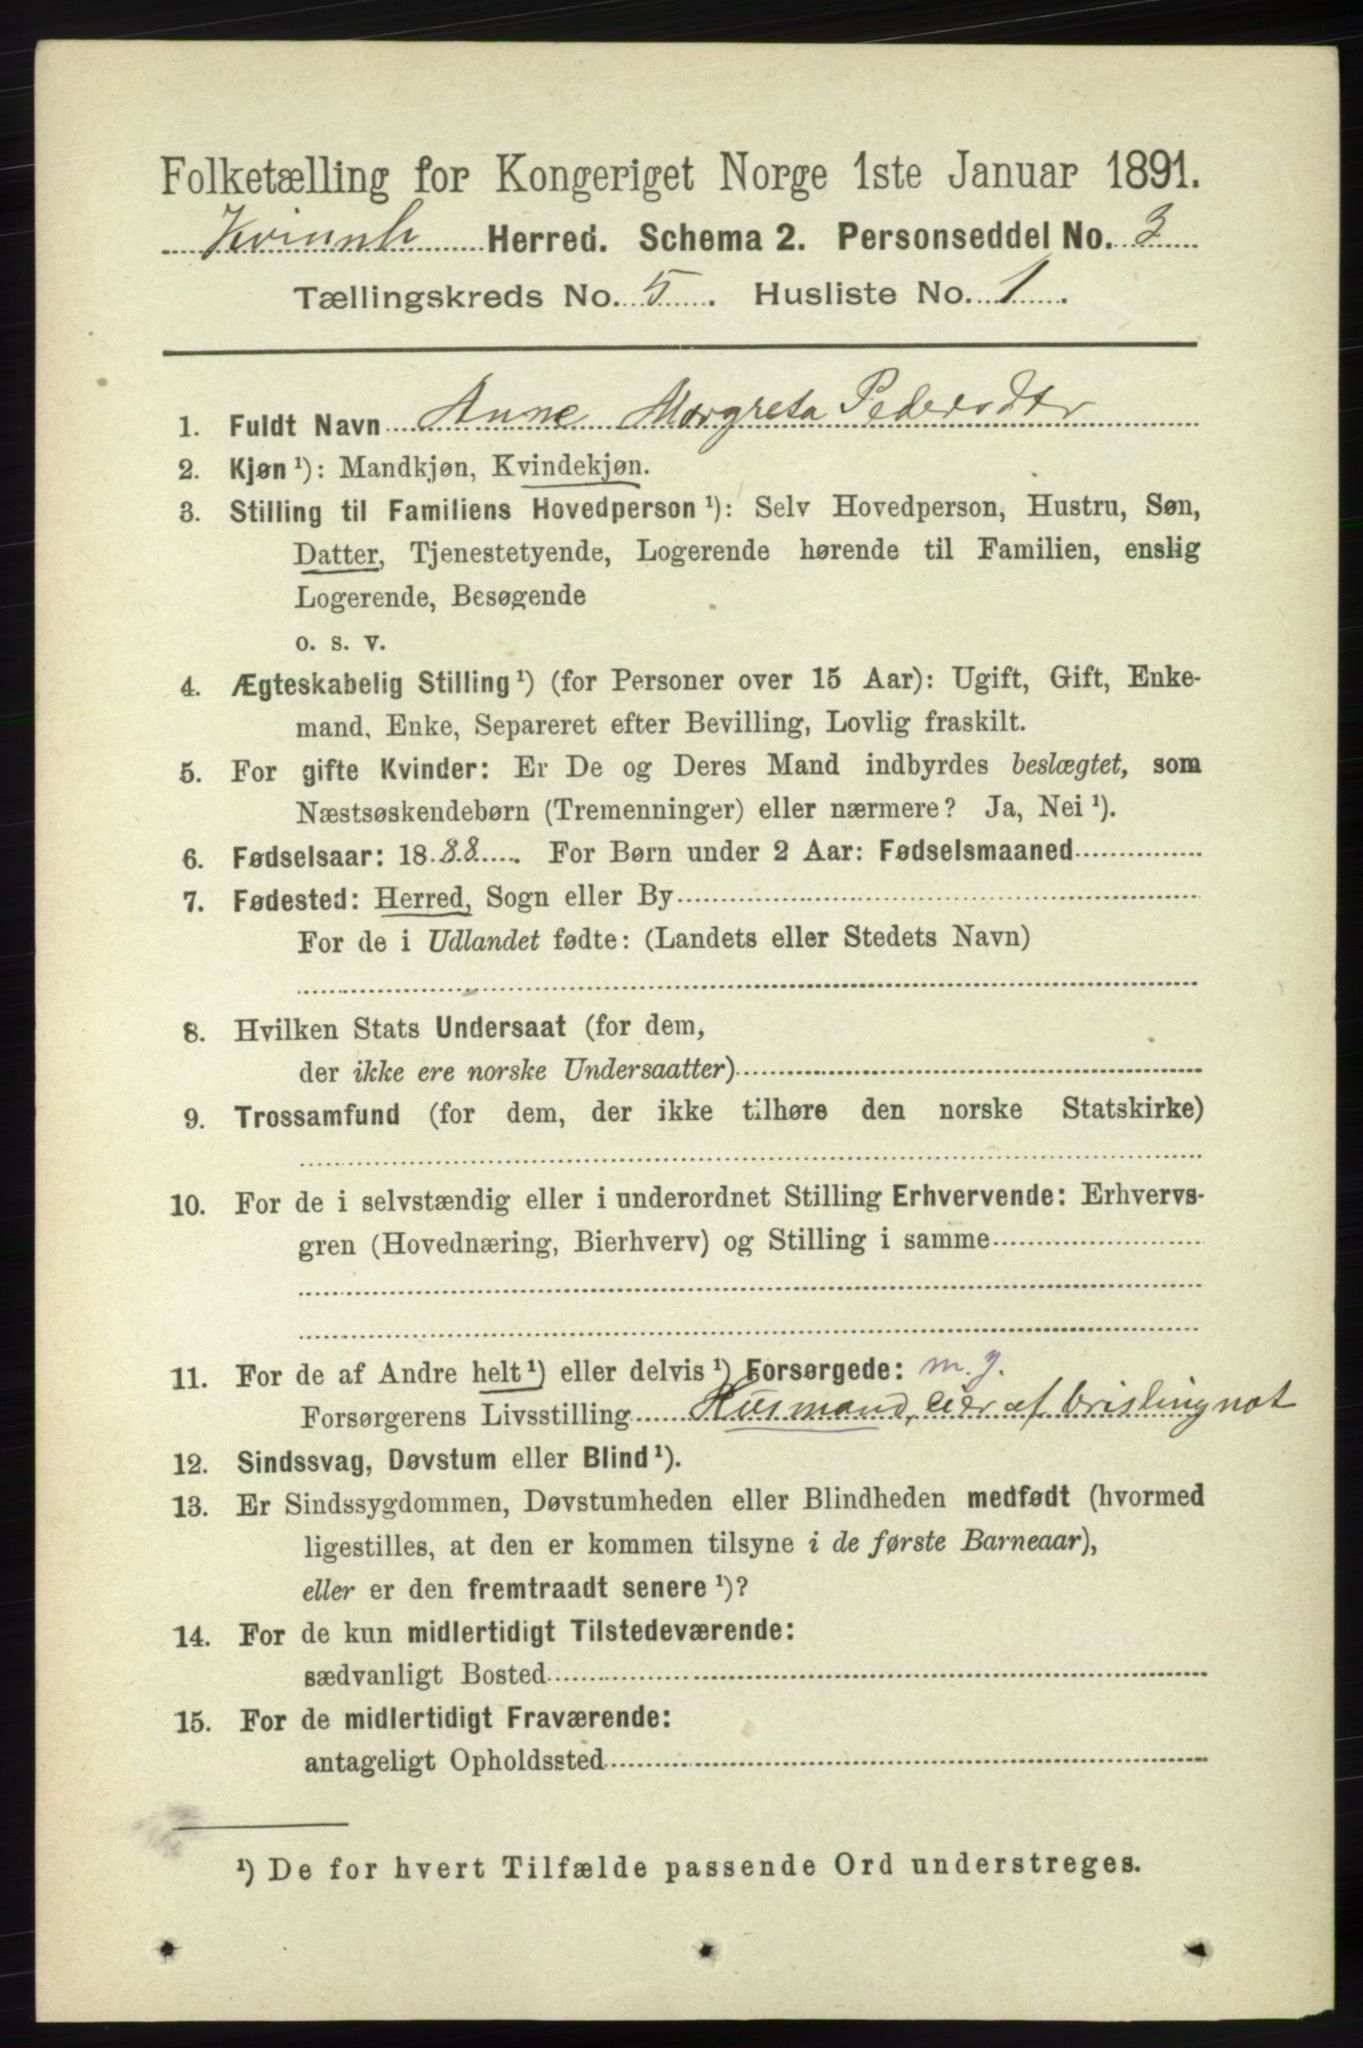 Folketælling for Kongeriget Norge 1ste Januar 1891.
Kvinnh Herred. Schema 2. Personseddel No. 3
Tællingskreds No. 5. Husliste No. 1.
1. Fuldt Navn Anne Margreta Pedersdtr
2. Kjøn¹): Mandkjøn, Kvindekjøn.
3. Stilling til Familiens Hovedperson¹): Selv Hovedperson, Hustru, Søn,
Datter, Tjenestetyende, Logerende hørende til Familien, enslig
Logerende, Besøgende
o. s. v.
4. Ægteskabelig Stilling¹) (for Personer over 15 Aar): Ugift, Gift, Enke-
mand, Enke, Separeret efter Bevilling, Lovlig fraskilt.
5. For gifte Kvinder: Er De og Deres Mand indbyrdes beslægtet, som
Næstsøskendebørn (Tremenninger) eller nærmere? Ja, Nei¹).
6. Fødselsaar: 1888. For Børn under 2 Aar: Fødselsmaaned
7. Fødested: Herred, Sogn eller By
For de i Udlandet fødte: (Landets eller Stedets Navn)
8. Hvilken Stats Undersaat (for dem,
der ikke ere norske Undersaatter)
9. Trossamfund (for dem, der ikke tilhøre den norske Statskirke)
10. For de i selvstændig eller i underordnet Stilling Erhvervende: Erhvervs-
gren (Hovednæring, Bierhverv) og Stilling i samme
11. For de af Andre helt¹) eller delvis¹) Forsørgede: m. j.
Forsørgerens Livsstilling Husmand, eier af brislingnot
12. Sindssvag, Døvstum eller Blind¹).
13. Er Sindssygdommen, Døvstumheden eller Blindheden medfødt (hvormed
ligestilles, at den er kommen tilsyne i de første Barneaar),
eller er den fremtraadt senere¹)?
14. For de kun midlertidigt Tilstedeværende:
sædvanligt Bosted
15. For de midlertidigt Fraværende:
antageligt Opholdssted
¹) De for hvert Tilfælde passende Ord understreges.